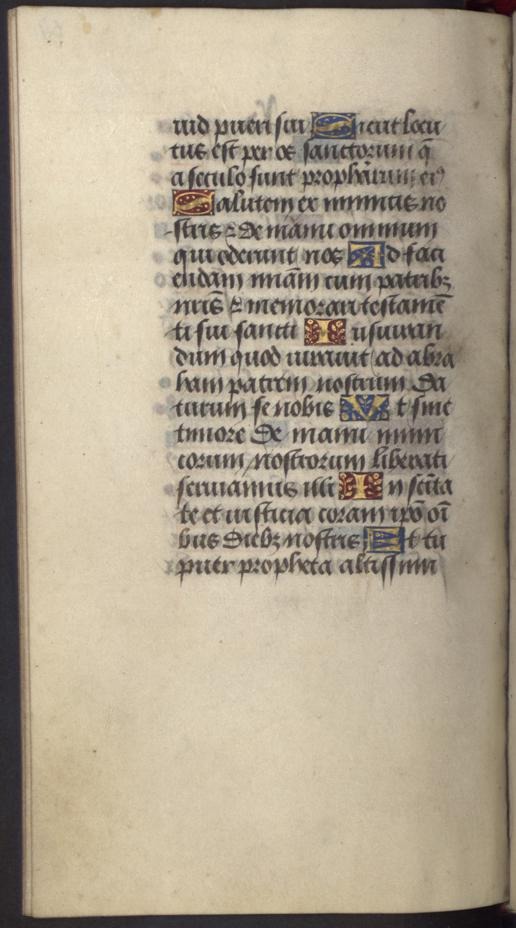 uid pueri sui Sicut locu
tus est per os sanctorum q̄
a seculo sunt prophetarum ei9
Salutem ex inimicis no
stris & de manu omnium
qui oderunt nos Ad faci
endam miā̄m cum patribz
nr̄is & memorari testamē
ti sui sancti Iusiuran
dum quod iuravit ad abra
ham patrem nostrum Da
turum se nobis Vt sine
timore De manu inimi
corum nostrorum liberati
serviamus illi In sc̄ita
te et iusticia coram ip̄o oī
bus diebz nostris Et tu
puer propheta altissimi